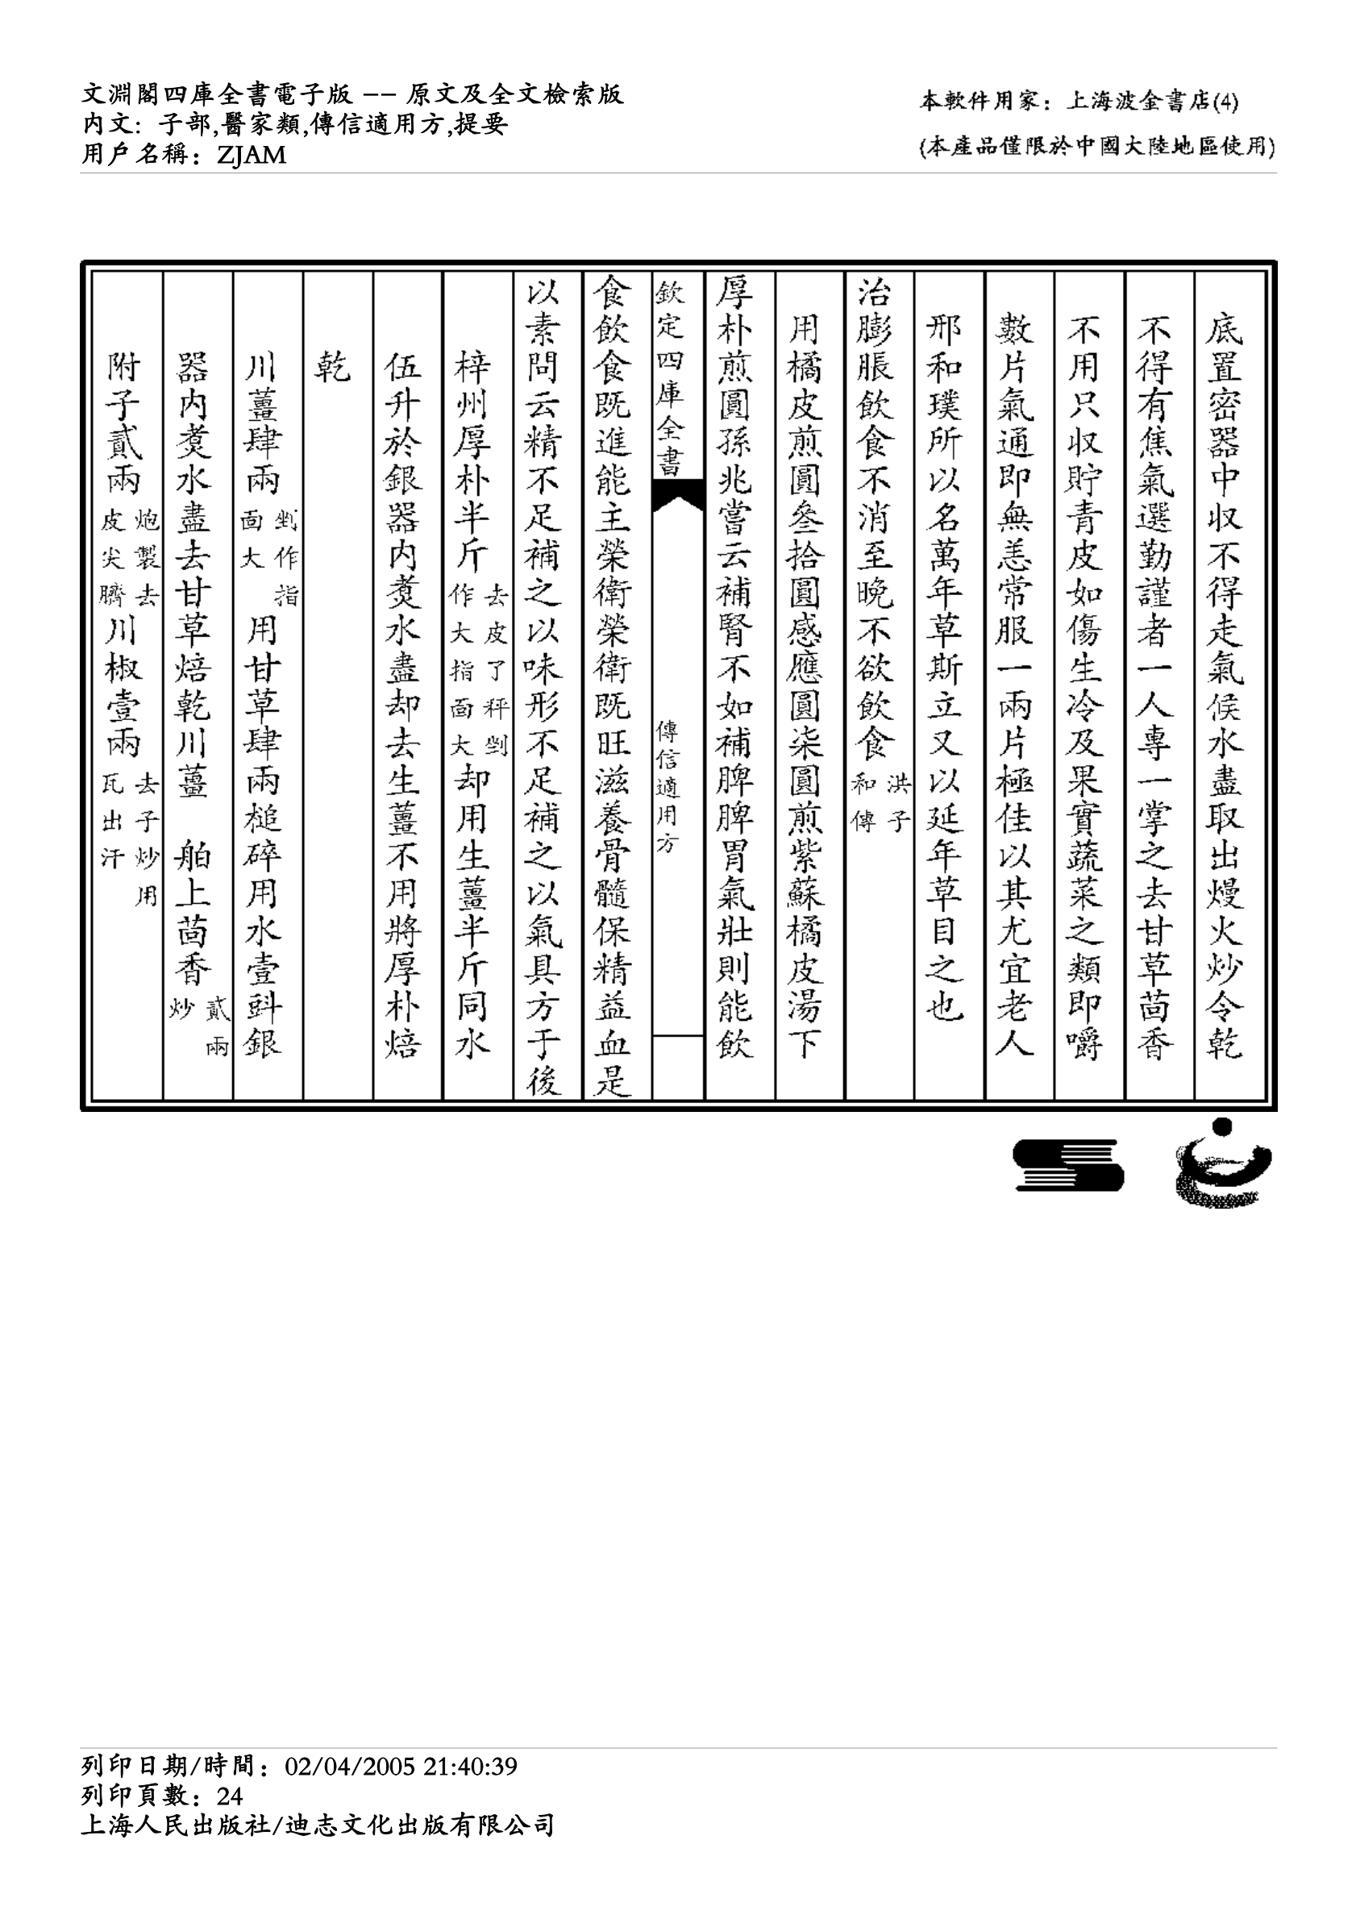 文淵閣四庫全書電子版 -- 原文及全文檢索版
内文：子部,醫家類,傳信適用方,提要
用戶名稱：ZJAM
本軟件用家：上海波金書店(4)
(本產品僅限於中國大陸地區使用)
底置密器中収不得走氣候水盡取出熳火炒令乾
不得有焦氣選勤謹者一人専一掌之去甘草茴香
不用只収貯青皮如傷生冷及果實蔬菜之類即嚼
數片氣通即無恙常服一兩片極佳以其尤宜老人
邢和璞所以名萬年草斯立又以延年草目之也
治膨脹飲食不消至晚不欲飲食洪子和傳
用橘皮煎圓叄拾圓感應圓柒圓煎紫蘇橘皮湯下
厚朴煎圓孫兆嘗云補腎不如補脾脾胃氣壯則能飲
欽定四庫全書
傳信適用方
食飲食既進能主榮衛榮衛既旺滋養骨髓保精益血是
以素問云精不足補之以味形不足補之以氣具方于後
梓州厚朴半斤去皮了秤剉作大指面大却用生薑半斤同水
伍升於銀器内煑水盡却去生薑不用將厚朴焙
乾
川薑肆兩剉作指面大用甘草肆兩槌碎用水壹㪷銀
器内煑水盡去甘草焙乾川薑 舶上茴香貳兩炒
附子貳兩炮製去皮尖臍川椒壹兩去子炒用瓦出汗
列印日期/時間：02/04/2005 21:40:39
列印頁數：24
上海人民出版社/迪志文化出版有限公司